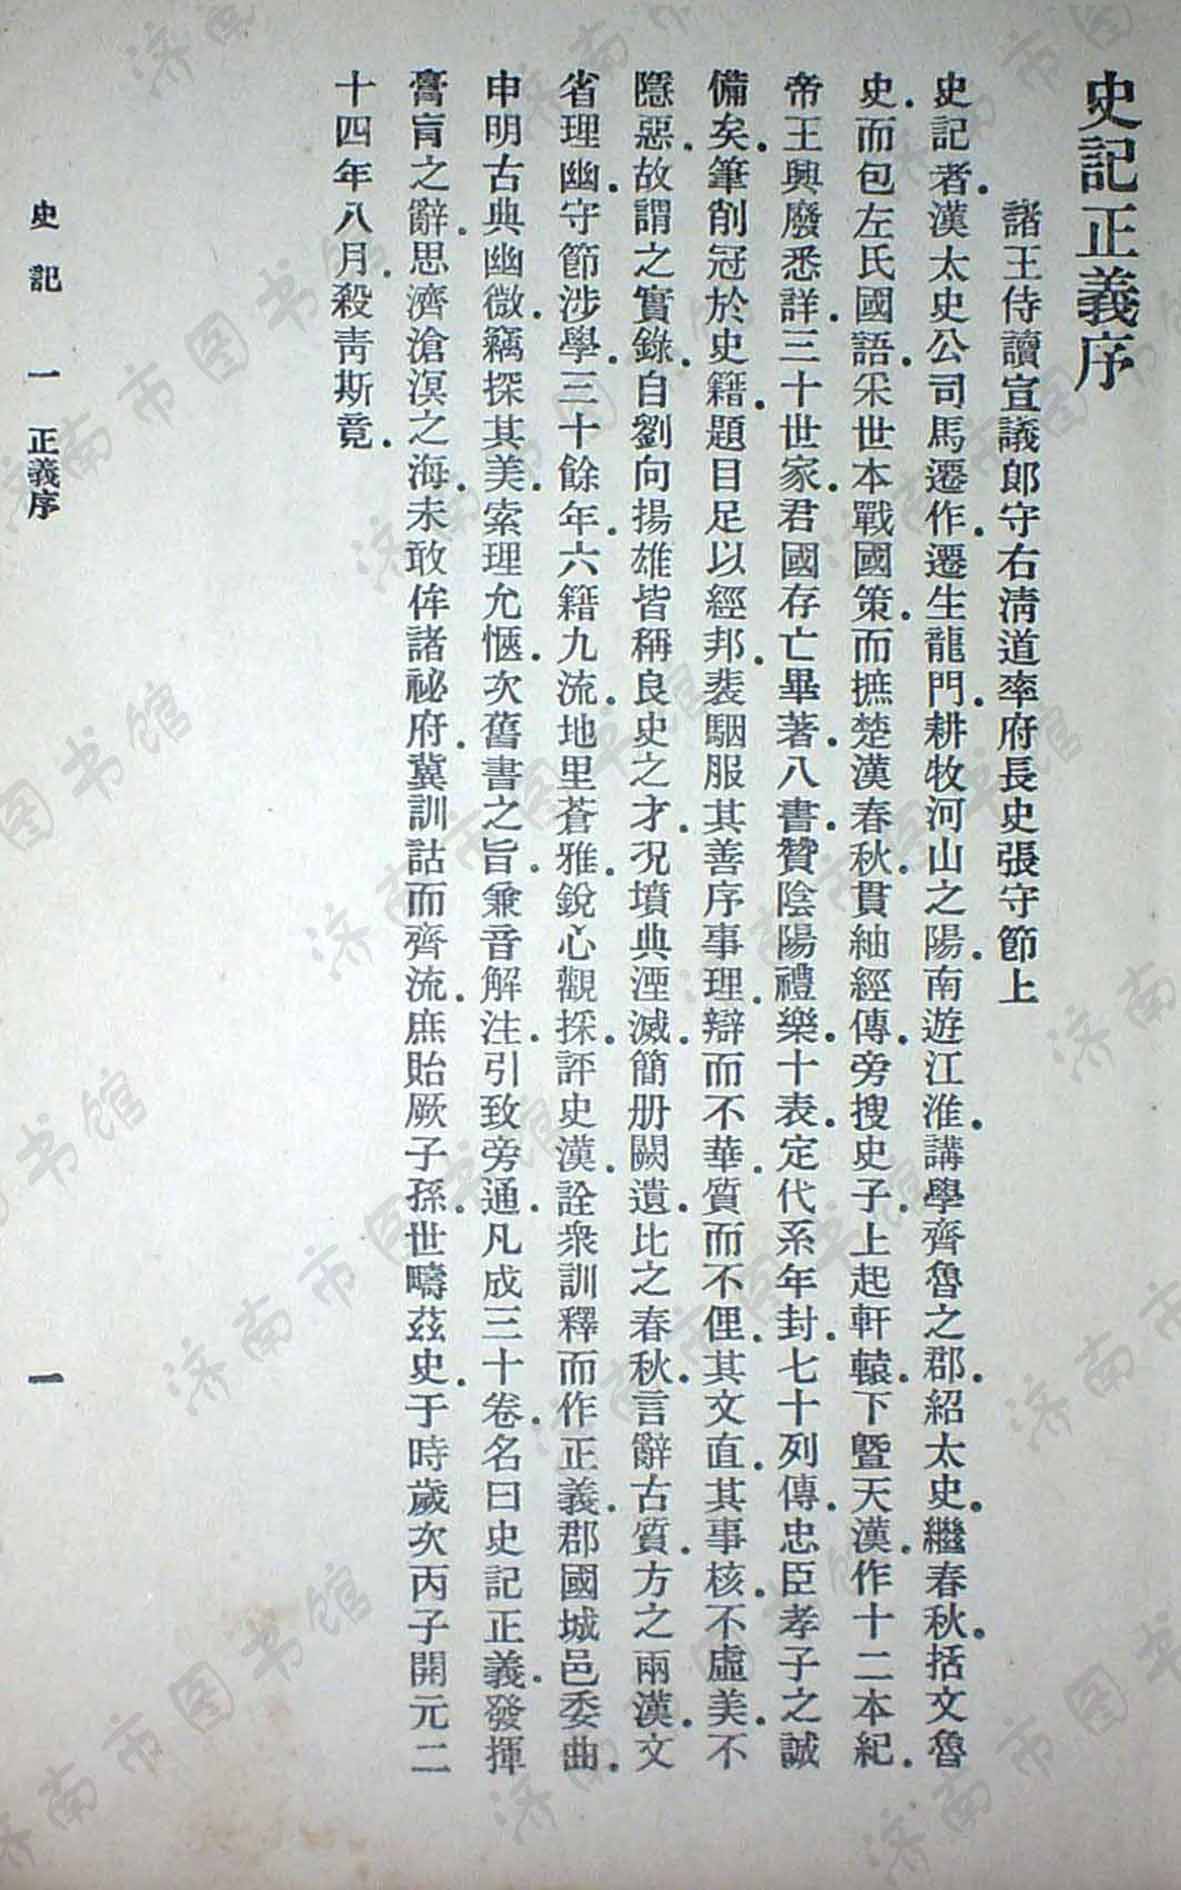 史記正義序
諸王侍讀宣議郎守右清道率府長史張守節上
史記者.漢太史公司馬遷作.遷生龍門.耕牧河山之陽.南遊江淮.講學齊魯之郡.紹太史.繼春秋.括文魯
史.而包左氏國語.采世本戰國策.而摭楚漢春秋.貫紬經傳.旁搜史子.上起軒轅.下暨天漢.作十二本紀.
帝王興廢悉詳.三十世家.君國存亡畢著.八書.贊陰陽禮樂.十表.定代系年封.七十列傳.忠臣孝子之誠
備矣.筆削冠於史籍.題目足以經邦.裴駰服其善序事理.辯而不華.質而不俚.其文直.其事核.不虛美.不
隱惡.故謂之實錄.自劉向揚雄皆稱良史之才.況墳典湮滅.簡册闕遺.比之春秋.言辭古質.方之兩漢.文
省理幽.守節涉學.三十餘年.六籍九流.地里蒼雅.銳心觀採.評史漢.詮衆訓釋而作正義.郡國城邑委曲.
申明古典幽微.竊探其美.索理允愜.次舊書之旨.兼音解注.引致旁通.凡成三十卷.名曰史記正義.發揮
膏肓之辭.思濟滄溟之海.未敢侔諸祕府.冀訓詁而齊流.庶貽厥子孫.世疇茲史.于時歲次丙子開元二
十四年八月.殺青斯竟.
史記 一 正義序 一
济南市图书馆
济南市图书馆
济南市图书馆
济南市图书馆
济南市图书馆
济南市图书馆